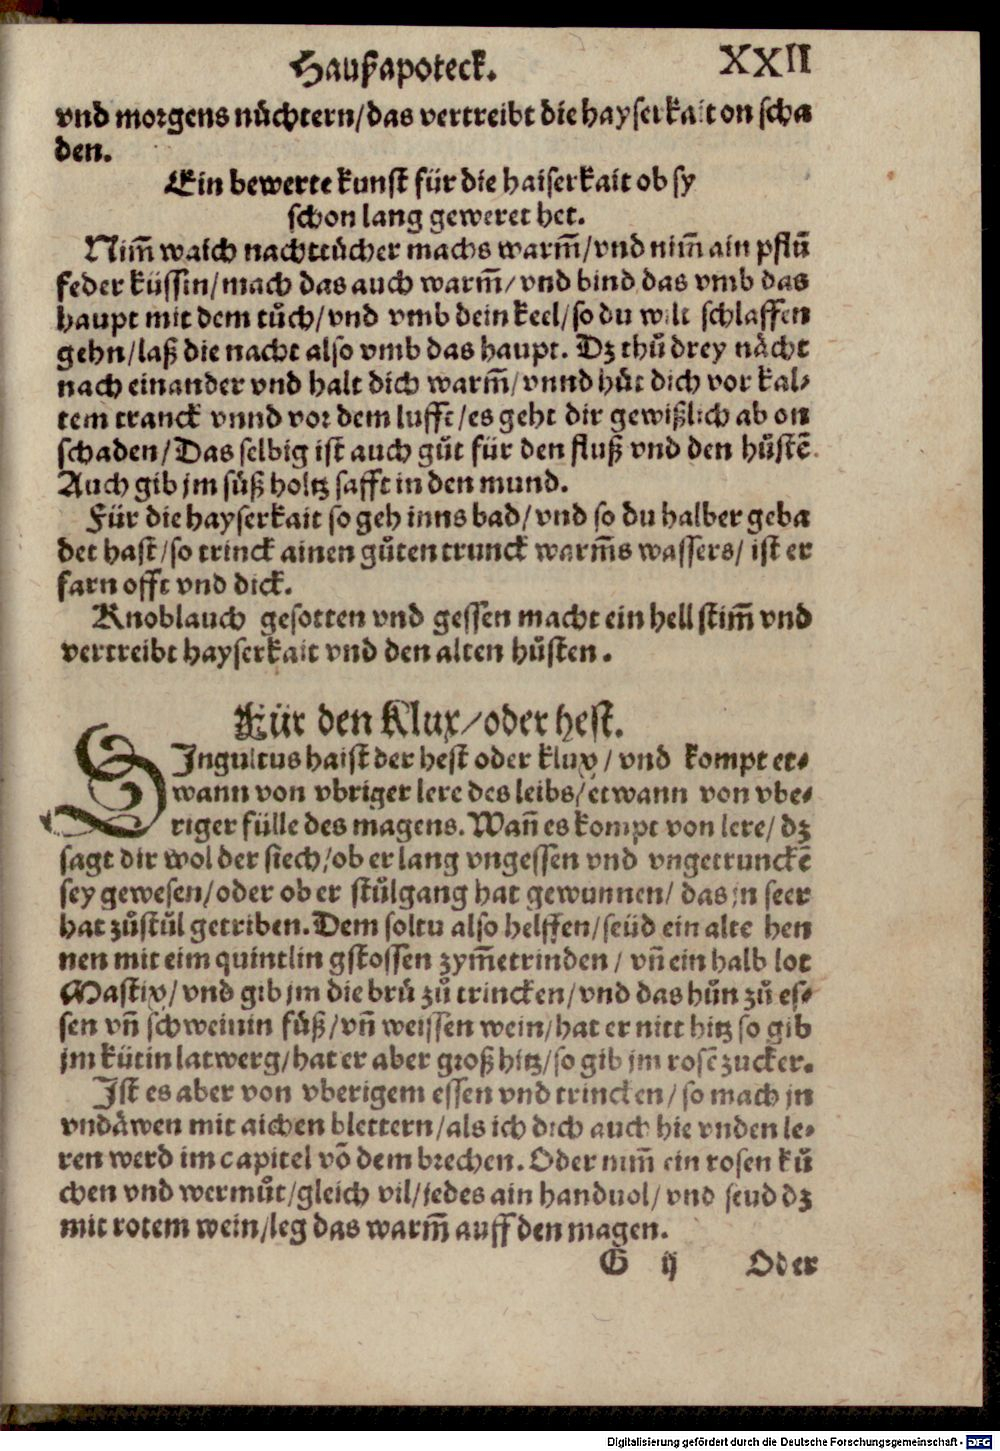 Haußapoteck. XXII
vnd morgens nůchtern/das vertreibt die hayserkait on scha
den.
Ein bewerte kunst für die haiserkait ob sy
schon lang geweret het.
Nim̃ waich nachttücher machs warm̃/vnd nim̃ ain pflũ
feder küssin/mach das auch warm̃/vnd bind das vmb das
haupt mit dem tůch/vnd vmb dein keel/so du wilt schlaffen
gehn/laß die nacht also vmb das haupt. Dz thů drey nächt
nach einander vnd halt dich warm̃/vnnd hüt dich vor kal-
tem tranck vnnd vor dem lufft/es geht dir gewißlich ab on
schaden/Das selbig ist auch gůt für den fluß vnd den hůstẽ.
Auch gib jm süß holtz safft in den mund.
Für die hayserkait so geh inns bad/vnd so du halber geba
det hast/so trinck ainen gůten trunck warm̃s wassers/ist er
farn offt vnd dick.
Knoblauch gesotten vnd gessen macht ein hell stim̃ vnd
vertreibt hayserkait vnd den alten hůsten.
Für den Klux/oder hest.
SIngultus haist der hest oder klux/vnd kompt et-
wann von vbriger lere des leibs/etwann von vbe-
riger fülle des magens. Wañ es kompt von lere/dz
sagt dir wol der siech/ob er lang vngessen vnd vngetrunckẽ
sey gewesen/oder ob er stůlgang hat gewunnen/das jn seer
hat zůstůl getriben. Dem soltu also helffen/seüd ein alte hen
nen mit eim quintlin gstossen zym̃etrinden/vñ ein halb lot
Mastix/vnd gib jm die brü zů trincken/vnd das hůn zů es-
sen vñ schweinin füß/vñ weissen wein/hat er nitt hitz so gib
jm kütin latwerg/hat er aber groß hitz/so gib jm rosẽzucker.
Ist es aber von vberigem essen vnd trincken/so mach jn
vndäwen mit aichen blettern/als ich dich auch hie vnden le-
ren werd im capitel võ dem brechen. Oder nim̃ ein rosen ků
chen vnd wermůt/gleich vil/jedes ain handuol/vnd seud dz
mit rotem wein/leg das warm̃ auff den magen.
G ij Oder
Digitalisierung gefördert durch die Deutsche Forschungsgemeinschaft - DFG